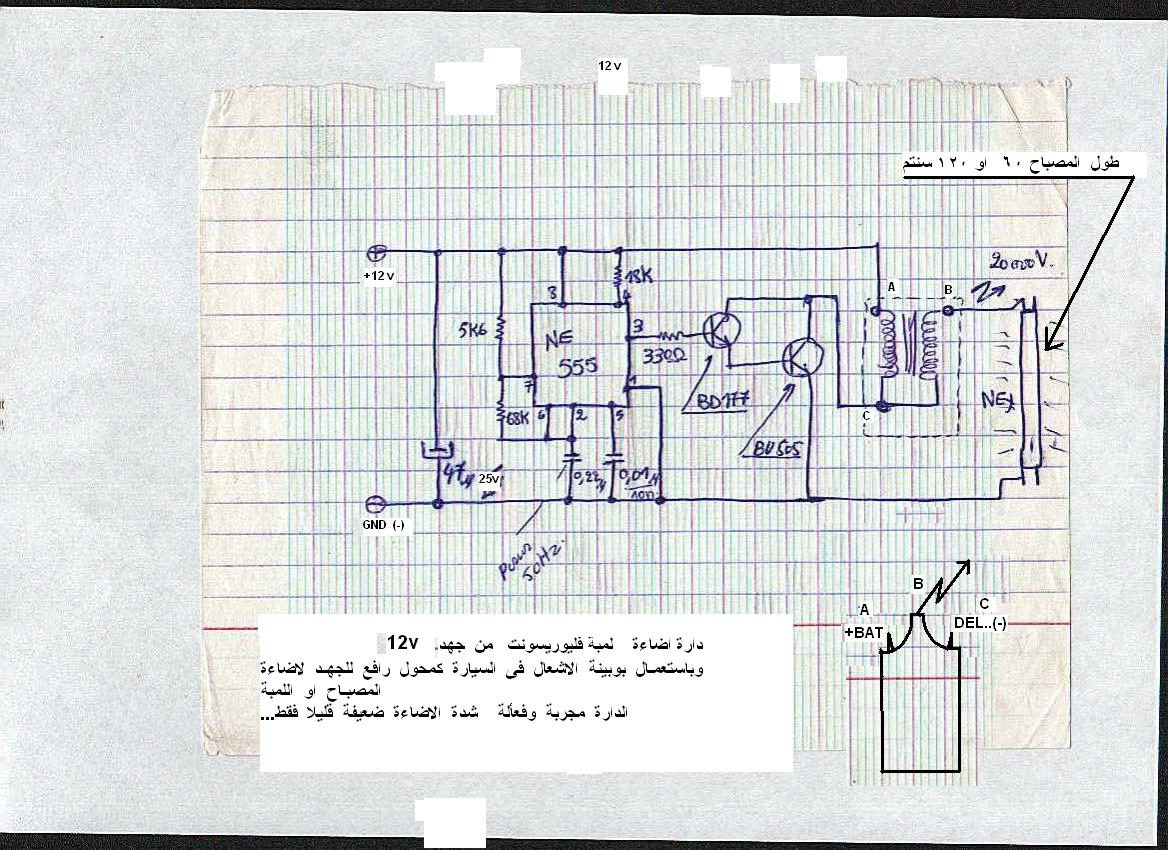 12v
طول المصباح ٦٠ او ١٢٠ سنتم
20000V.
+12v
18K
A
B
8
4
5K6
NE
555
3
330Ω
7
1
68K
6
2
5
BD177
BU505
C
47µ
25v
0,22µ
0,01µ
10n
GND (-)
50Hz.
B
A
C
+BAT
DEL..(-)
دارة اضاءة لمبة فليوريسونت من جهد. 12v
وباستعمال بوبينة الاشعال فى السيارة كمحول رافع للجهد لاضاءة
المصباح او اللمبة
الدارة مجربة وفعالة شدة الاضاءة ضعيفة قليلا فقط...